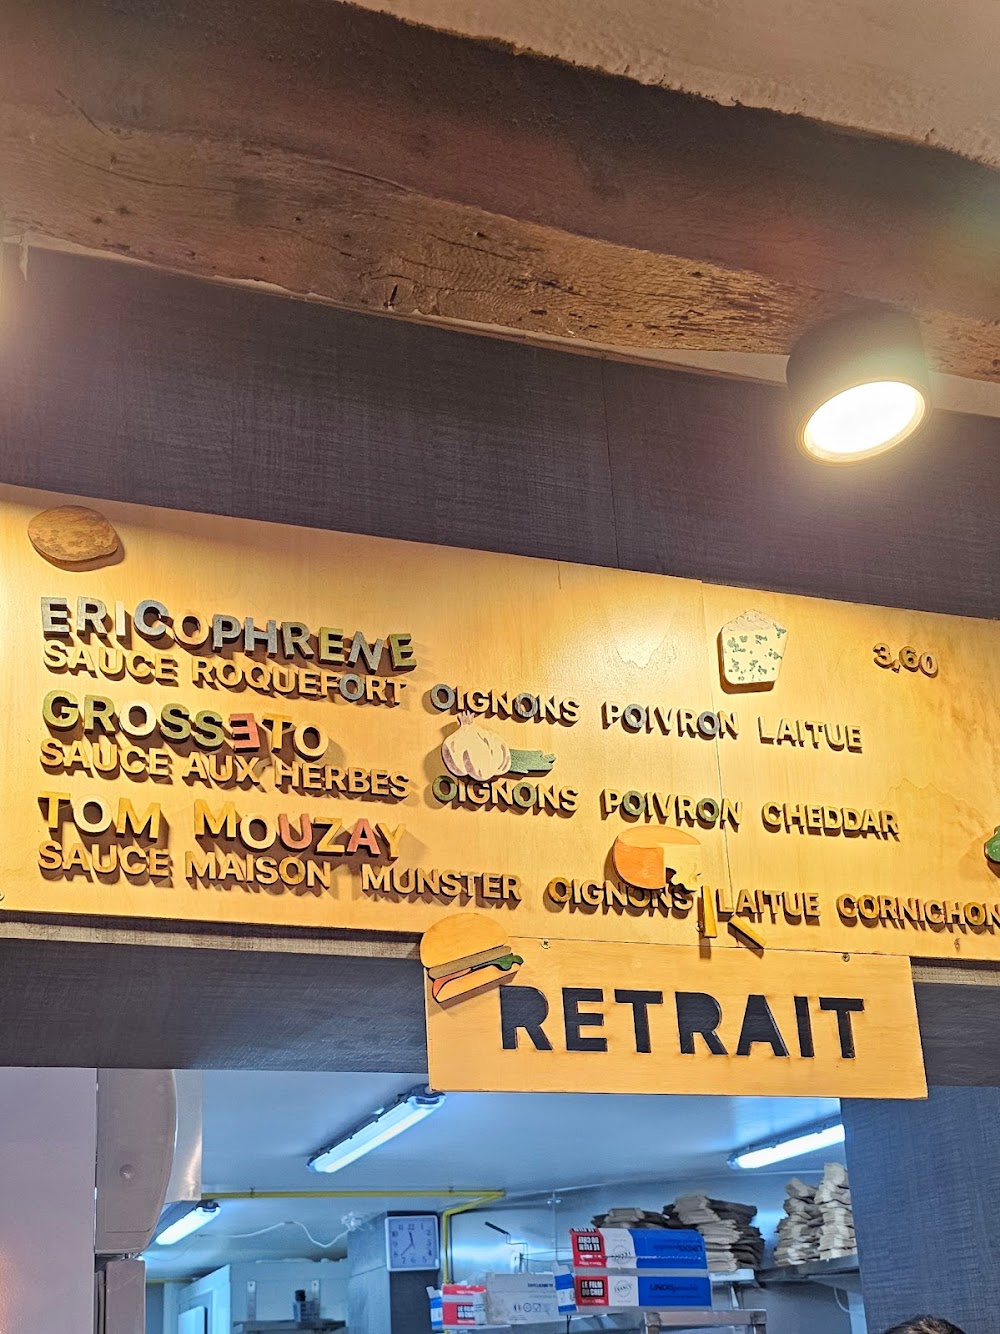 ERICOPHRENE 3,60
SAUCE ROQUEFORT OIGNONS POIVRON LAITUE
GROSSETO
SAUCE AUX HERBES OIGNONS POIVRON CHEDDAR
TOM MOUZAY
SAUCE MAISON MUNSTER OIGNONS LAITUE CORNICHON
RETRAIT
LE FILM DU CHEF
LE FILM DU CHEF